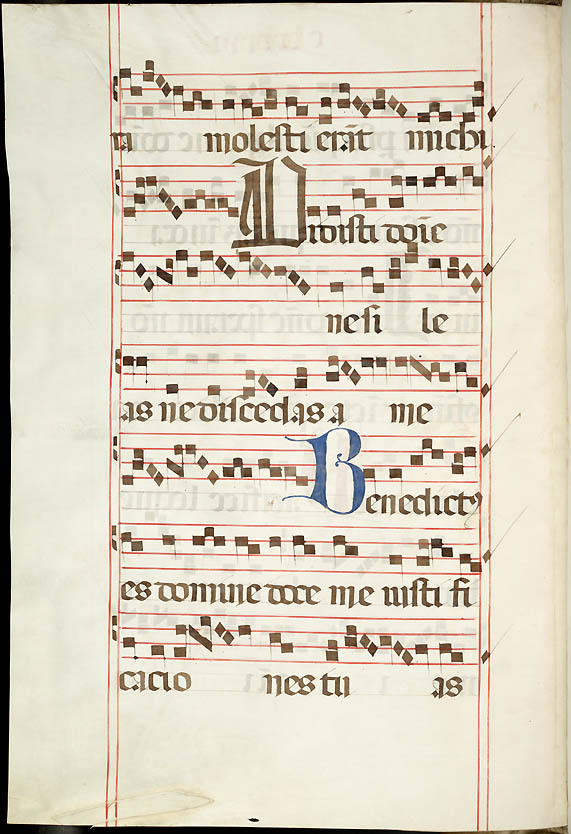 ta molesti erāt michi
Vidisti dn̄e
ne si le
as ne discedas a me
Benedictꝰ
es domine doce me iusti fi
cacio nes tu as